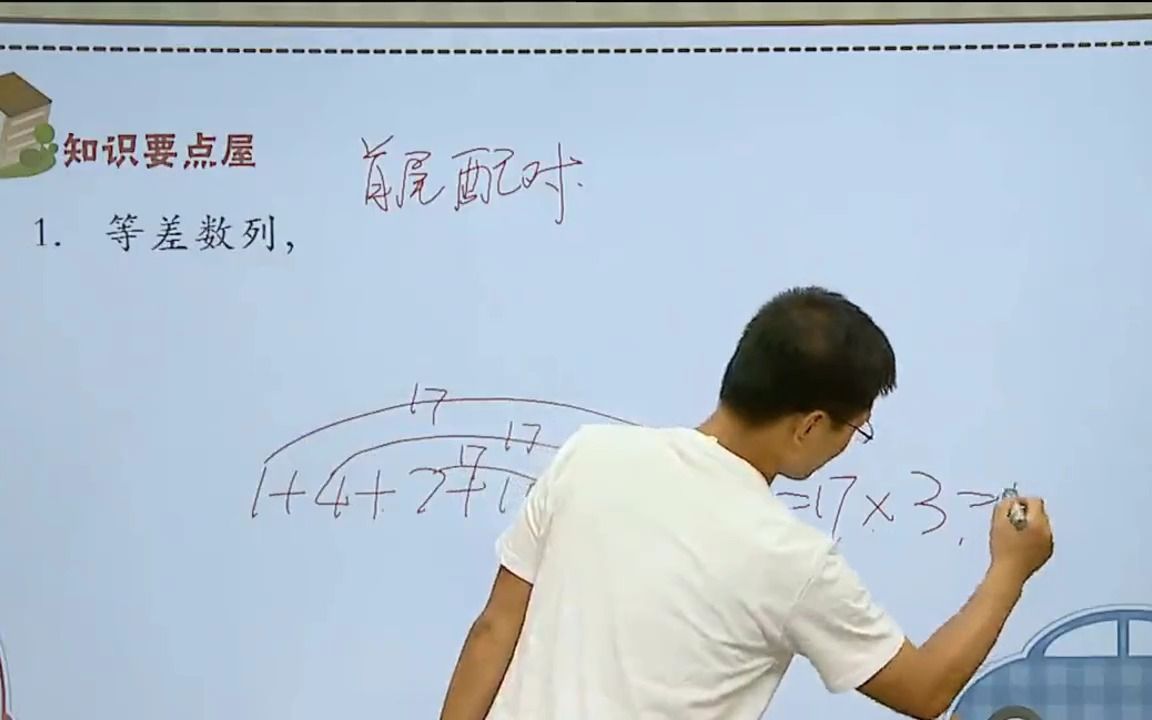 知识要点屋
首尾配对
1. 等差数列,
17
17
17
1+4+7+1
=17×3=